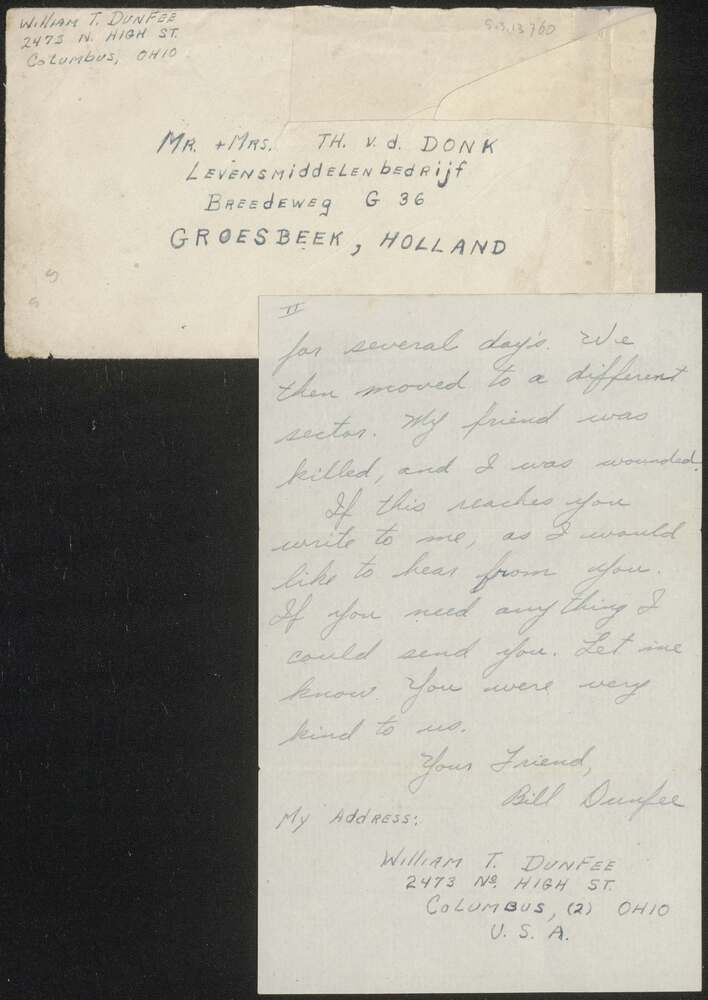 William T. Dunfee
2473 N. High St.
Columbus, Ohio
Mr. + Mrs. Th. v. d. Donk
Levensmiddelenbedrijf
Breedeweg G 36
Groesbeek, Holland
II
for several day's. We
then moved to a different
sector. My friend was
killed, and I was wounded.
If this reaches you
write to me, as I would
like to hear from you.
If you need any thing I
could send you. Let me
know. You were very
kind to us.
Your Friend,
Bill Dunfee
My Address:
William T. Dunfee
2473 No. High St.
Columbus, (2) Ohio
U. S. A.